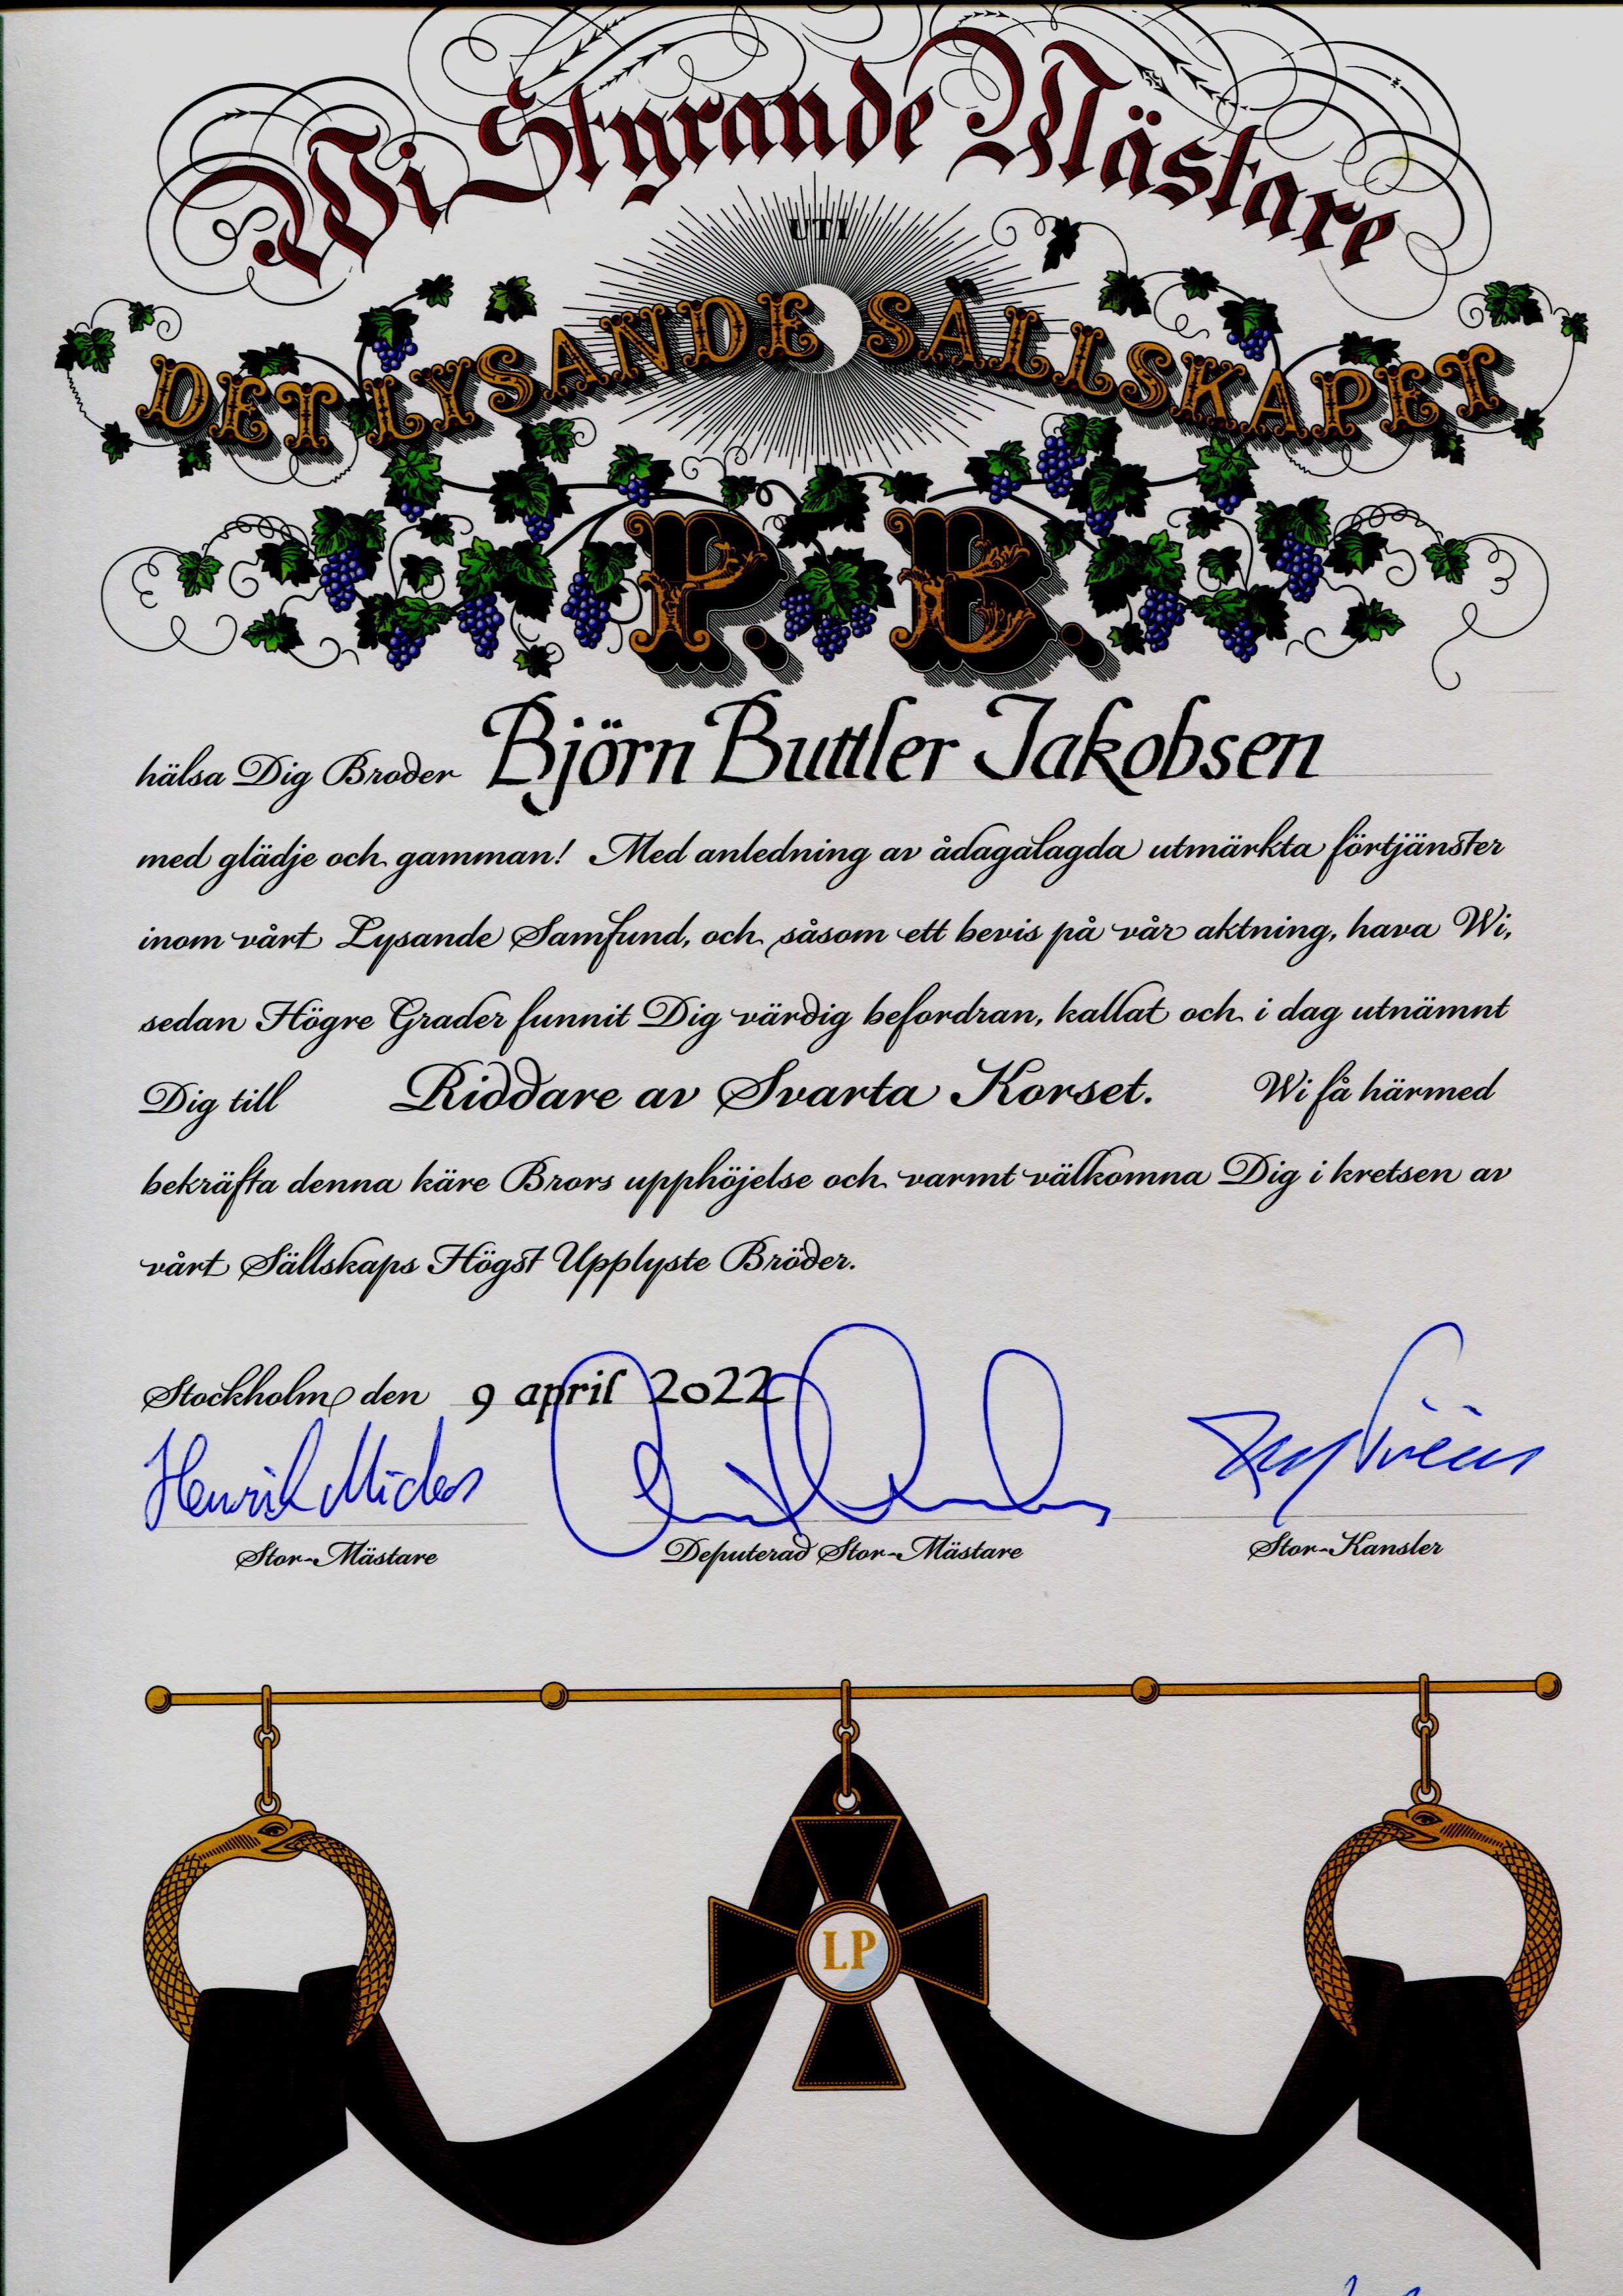 Wi Styrande Mästare
UTI
DET LYSANDE SÄLLSKAPET
P. B.
hälsa Dig Broder Björn Buttler Jakobsen
med glädje och gamman! Med anledning av ådagalagda utmärkta förtjänster
inom vårt Lysande Samfund, och såsom ett bevis på vår aktning, hava Wi,
sedan Högre Grader funnit Dig värdig befordran, kallat och i dag utnämnt
Dig till Riddare av Svarta Korset. Wi få härmed
bekräfta denna käre Brors upphöjelse och varmt välkomna Dig i kretsen av
vårt Sällskaps Högst Upplyste Bröder.
Stockholm den 9 april 2022
Henrik
Stor-Mästare Deputerad Stor-Mästare Stor-Kansler
LP